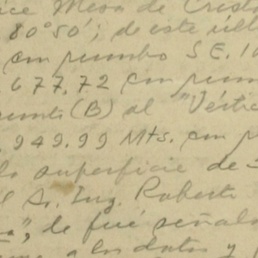 ice Mesa de Cristo
80°50'; de este últ
con rumbo S E. 10
677.72 con rum
punto (B) al "Vértic
.949.99 Mts. con r
la superficie de
l Sr. Ing. Roberto
", le fué señala
a los datos y